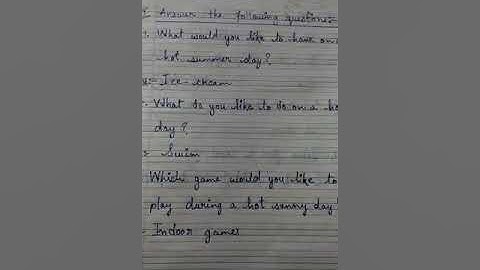 Answer the following questions:-
What would you like to have on a
hot summer day?
Ice-cream
What do you like to do on a ho
day?
Swim
Which game would you like to
play during a hot sunny day
Indoor games